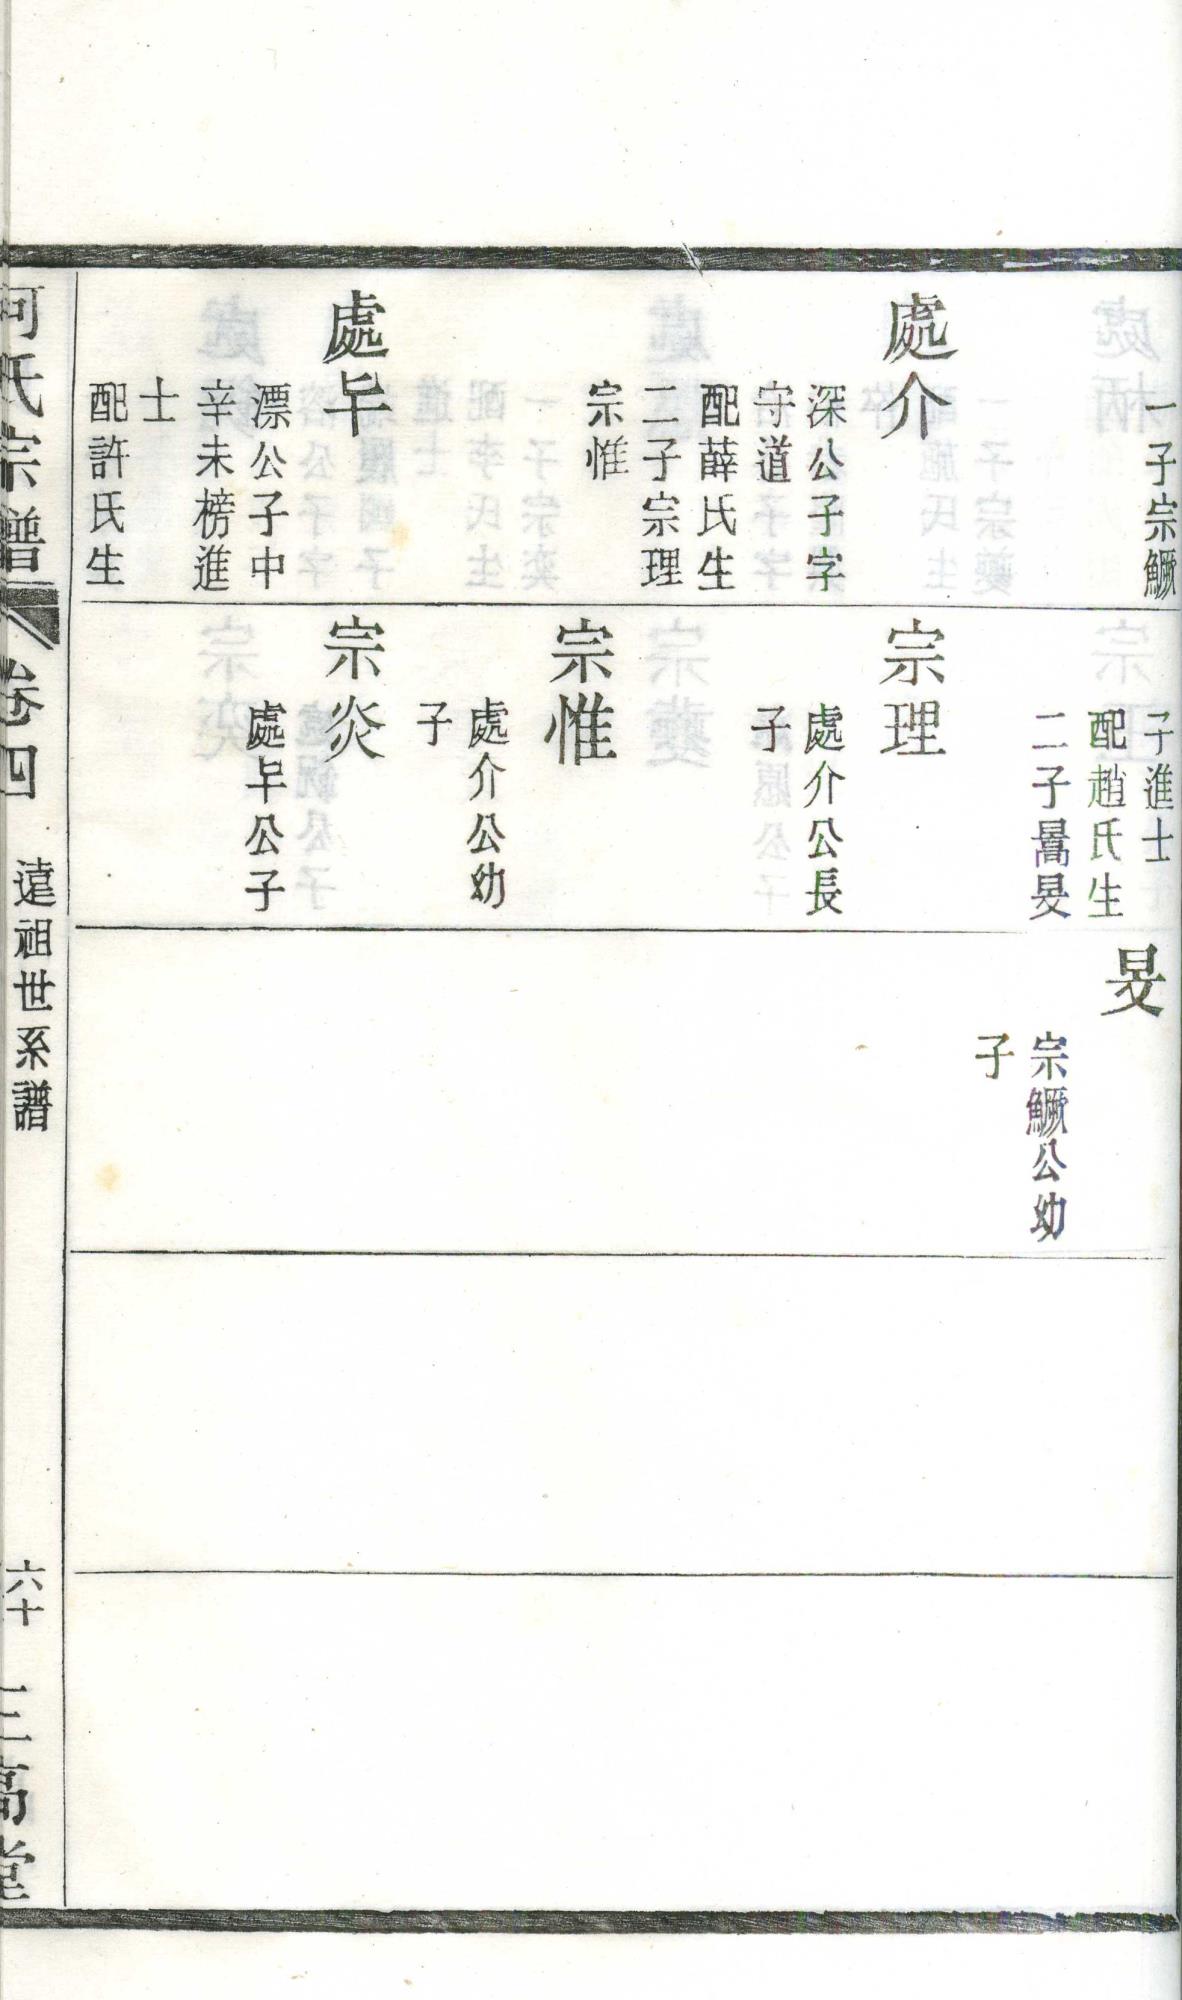 一子宗鱖
處介
深公子字
守道
配薛氏生
二子宗理
宗惟
處㫔
漂公子中
辛未榜進
士
配許氏生
子進士
配趙氏生
二子暠旻
宗理
處介公長
子
宗惟
處介公幼
子
宗炎
處㫔公子
旻
宗鱖公幼
子
氏宗譜
卷四
遠祖世系譜
六十
三高堂